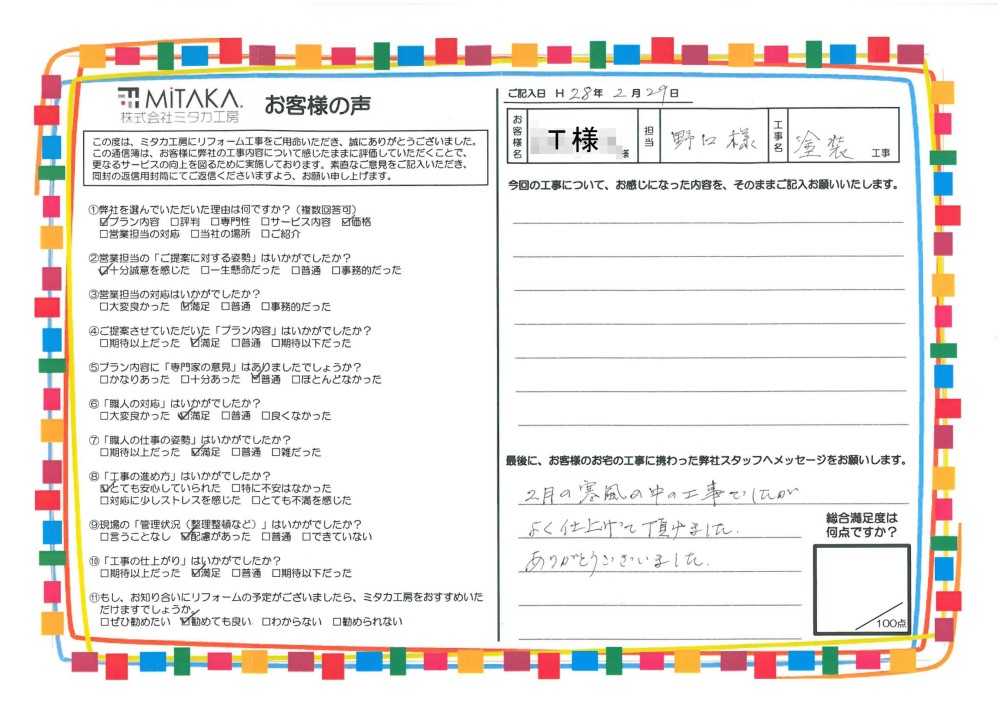 MiTAKA.
株式会社ミタカ工房
お客様の声
この度は、ミタカ工房にリフォーム工事をご用命いただき、誠にありがとうございました。
この通信簿は、お客様に弊社の工事内容について感じたままに評価していただくことで、
更なるサービスの向上を図るために実施しております。素直なご意見をご記入いただき、
同封の返信用封筒にてご返信くださいますよう、お願い申し上げます。
①弊社を選んでいただいた理由は何ですか？（複数回答可）
☑プラン内容 □評判 □専門性 □サービス内容 ☑価格
□営業担当の対応 □当社の場所 □ご紹介
②営業担当の「ご提案に対する姿勢」はいかがでしたか？
☑十分誠意を感じた □一生懸命だった □普通 □事務的だった
③営業担当の対応はいかがでしたか？
□大変良かった ☑満足 □普通 □事務的だった
④ご提案させていただいた「プラン内容」はいかがでしたか？
□期待以上だった ☑満足 □普通 □期待以下だった
⑤プラン内容に「専門家の意見」はありましたでしょうか？
□かなりあった □十分あった ☑普通 □ほとんどなかった
⑥「職人の対応」はいかがでしたか？
□大変良かった ☑満足 □普通 □良くなかった
⑦「職人の仕事の姿勢」はいかがでしたか？
□期待以上だった ☑満足 □普通 □雑だった
⑧「工事の進め方」はいかがでしたか？
☑とても安心していられた □特に不安はなかった
□対応に少しストレスを感じた □とても不満を感じた
⑨現場の「管理状況（整理整頓など）」はいかがでしたか？
□言うことなし ☑配慮があった □普通 □できていない
⑩「工事の仕上がり」はいかがでしたか？
□期待以上だった ☑満足 □普通 □期待以下だった
⑪もし、お知り合いにリフォームの予定がございましたら、ミタカ工房をおすすめいた
だけますでしょうか。
□ぜひ勧めたい ☑勧めても良い □わからない □勧められない
ご記入日 H 28年 2月 29日
お客様名 T様 様 担当 野口様 工事名 塗装 工事
今回の工事について、お感じになった内容を、そのままご記入お願いいたします。
最後に、お客様のお宅の工事に携わった弊社スタッフへメッセージをお願いします。
2月の寒風の中の工事でしたが
よく仕上げて頂けました。
ありがとうございました。
総合満足度は
何点ですか？
／100点